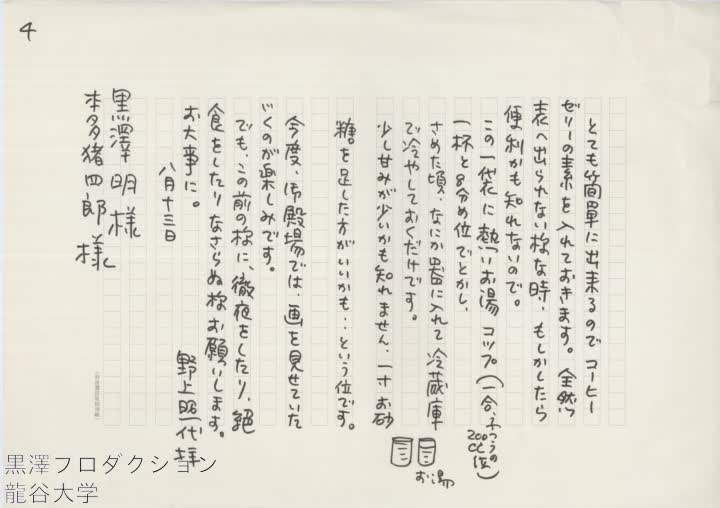 4
とても簡単に出来るので コーヒー
ゼリーの素を入れておきます。全然
表へ出られない様な時、もしかしたら
便利かも知れないので。
この一袋に熱いお湯 コップ(一合、ふつうの
200cc位)
一杯と8分め位でとかし、
さめた頃、なにか器に入れて冷蔵庫
で冷やしておくだけです。
お湯
少し甘みが少いかも知れません、一寸お砂
糖を足した方がいいかも・・という位です。
今度、御殿場では、画を見せていた
だくのが楽しみです。
でも、この前の様に、徹夜をしたり、絶
食をしたりなさらぬ様お願いします。
お大事に。
八月十三日
野上照代拝
黒澤明様
本多猪四郎様
黒澤プロダクション
龍谷大学